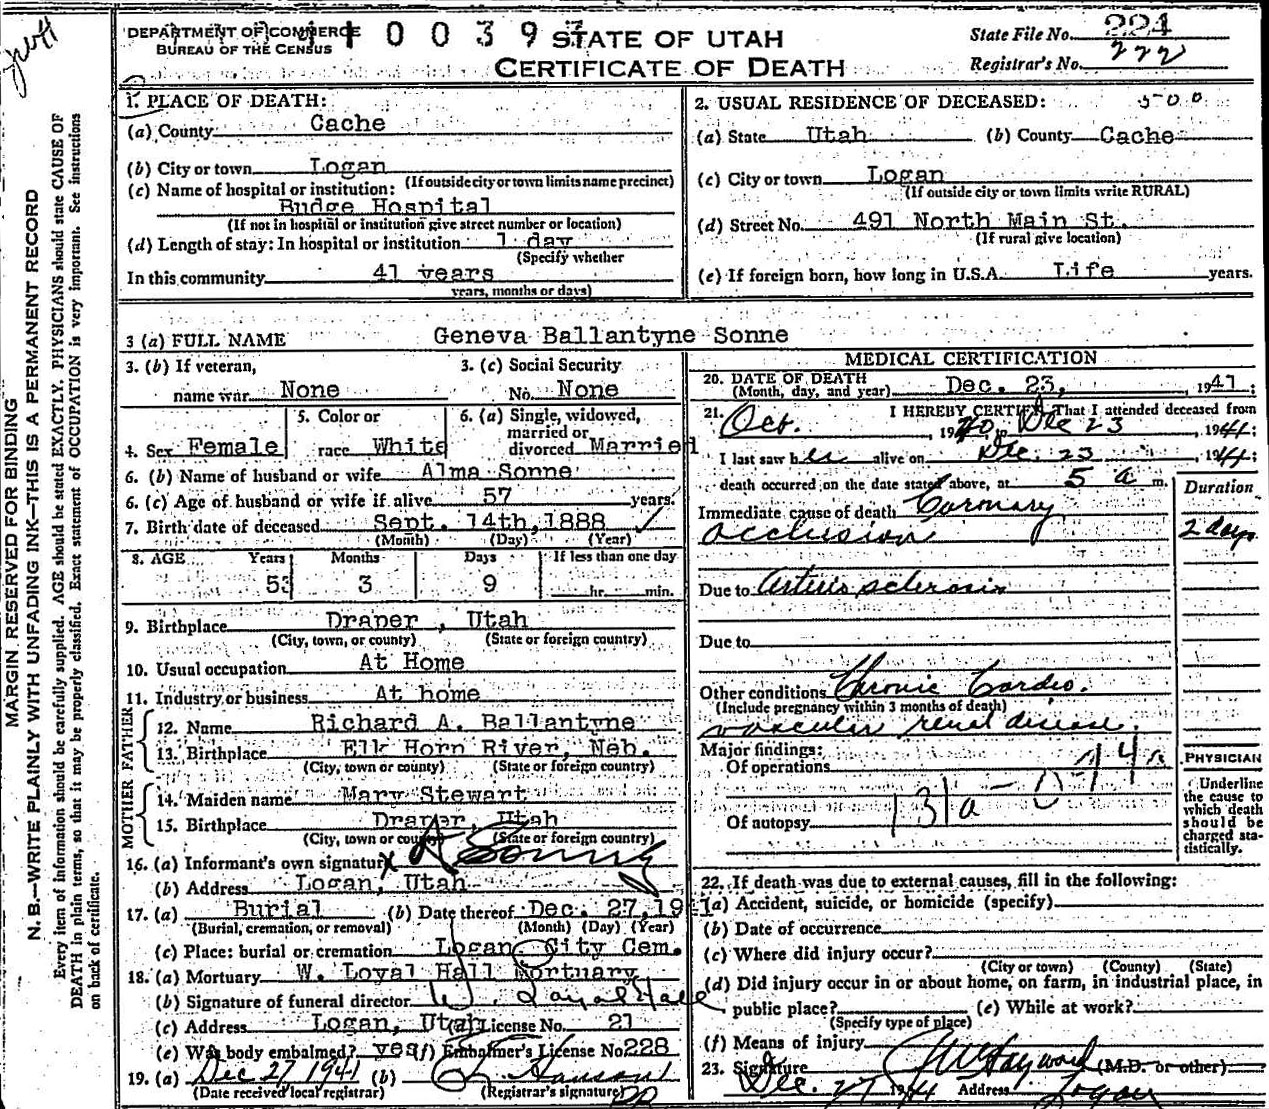 DEPARTMENT OF COMMERCE
BUREAU OF THE CENSUS
0 0 3 9 7
STATE OF UTAH
CERTIFICATE OF DEATH
State File No. 224
Registrar's No. 222
MARGIN RESERVED FOR BINDING
N. B.—WRITE PLAINLY WITH UNFADING INK—THIS IS A PERMANENT RECORD
Every item of information should be carefully supplied. AGE should be stated EXACTLY. PHYSICIANS should state CAUSE OF
DEATH in plain terms, so that it may be properly classified. Exact statement of OCCUPATION is very important. See instructions
on back of certificate.
1. PLACE OF DEATH:
(a) County Cache
(b) City or town Logan
(If outside city or town limits name precinct)
(c) Name of hospital or institution:
Budge Hospital
(If not in hospital or institution give street number or location)
(d) Length of stay: In hospital or institution 1 day
(Specify whether
In this community 41 years
years, months or days)
2. USUAL RESIDENCE OF DECEASED: 500
(a) State Utah (b) County Cache
(c) City or town Logan
(If outside city or town limits write RURAL)
(d) Street No. 491 North Main St.
(If rural give location)
(e) If foreign born, how long in U.S.A. Life years.
3 (a) FULL NAME Geneva Ballantyne Sonne
3. (b) If veteran,
name war. None
3. (c) Social Security
No. None
4. Sex Female
5. Color or
race White
6. (a) Single, widowed,
married or
divorced Married
6. (b) Name of husband or wife Alma Sonne
6. (c) Age of husband or wife if alive 57 years.
7. Birth date of deceased Sept. 14th, 1888 ✓
(Month) (Day) (Year)
8. AGE Years Months Days If less than one day
53 3 9 hr. min.
9. Birthplace Draper, Utah
(City, town, or county) (State or foreign country)
10. Usual occupation At Home
11. Industry or business At home
FATHER
12. Name Richard A. Ballantyne
13. Birthplace Elk Horn River, Neb.
(City, town or county) (State or foreign country)
MOTHER
14. Maiden name Mary Stewart
15. Birthplace Draper, Utah
(City, town or county) (State or foreign country)
16. (a) Informant's own signature x A Sonne
(b) Address Logan, Utah
17. (a) Burial (b) Date thereof Dec. 27, 1941
(Burial, cremation, or removal) (Month) (Day) (Year)
(c) Place: burial or cremation Logan City Cem.
18. (a) Mortuary W. Loyal Hall Mortuary
(b) Signature of funeral director W. Loyal Hall
(c) Address Logan, Utah (d) License No. 21
(e) Was body embalmed? yes (f) Embalmer's License No. 228
19. (a) Dec 27 1941 (b) Hanson
(Date received local registrar) (Registrar's signature)
MEDICAL CERTIFICATION
20. DATE OF DEATH
(Month, day, and year) Dec. 23, 1941;
21. I HEREBY CERTIFY, That I attended deceased from
Oct. , 1940, to Dec 23 , 1941;
I last saw her alive on Dec. 23 , 1941;
death occurred on the date stated above, at 5 a m.
Immediate cause of death Coronary
occlusion
Duration
2 days
Due to Arterio sclerosis
Due to
Other conditions Chronic Cardio.
(Include pregnancy within 3 months of death)
vascular renal disease.
Major findings:
Of operations
Of autopsy 131a
PHYSICIAN
Underline
the cause to
which death
should be
charged sta-
tistically.
22. If death was due to external causes, fill in the following:
(a) Accident, suicide, or homicide (specify)
(b) Date of occurrence
(c) Where did injury occur?
(City or town) (County) (State)
(d) Did injury occur in or about home, on farm, in industrial place, in
public place? (e) While at work?
(Specify type of place)
(f) Means of injury
23. Signature Hayward (M.D. or other)
Dec. 27 1941 Address Logan